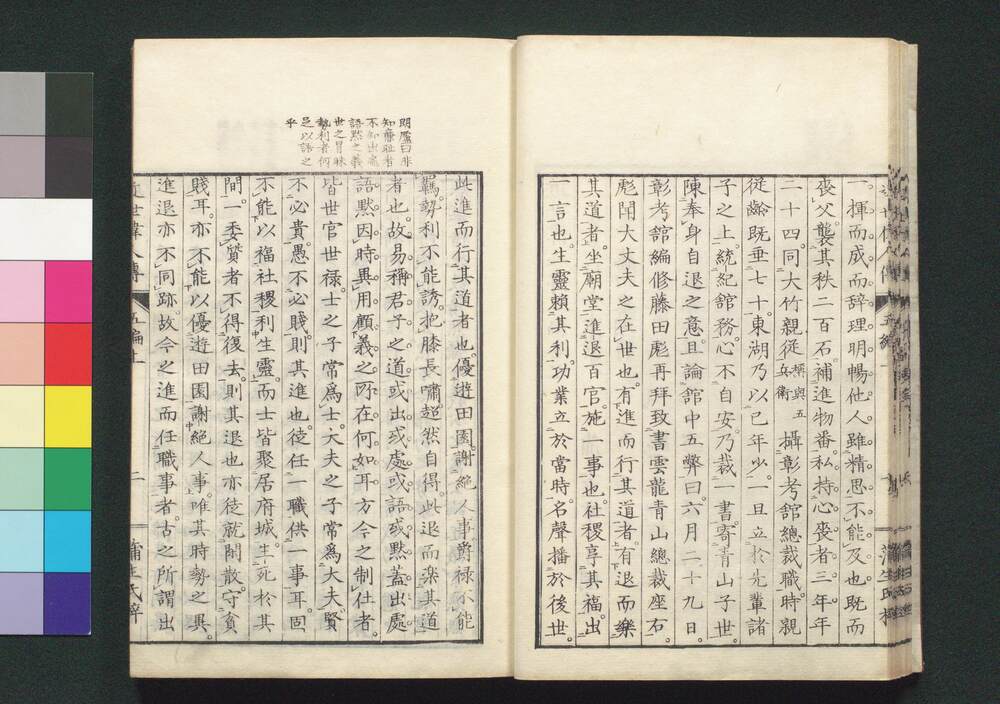 一揮而成而辞理明暢他人雖精思不能及也既而
喪父襲其秩二百石補進物番私持心喪者三年年
二十四同大竹親従稱與五兵衛攝彰考舘總裁職時親
従齡既垂七十東湖乃以己年少一旦立於先輩諸
子之上統紀舘務心不自安乃裁一書寄青山子世
陳奉身自退之意且論舘中五弊曰六月二十九日
彰考舘編修藤田彪再拜致書雲龍青山總裁座右
彪聞大丈夫之在世也有進而行其道者有退而樂
其道者坐廟堂進退百官施一事也社稷享其福出
一言也生靈賴其利功業立於當時名聲播於後世
明廬曰非
知廉耻者
不知出處
語默之義
世之冒昧
勢利者何
足以語之
乎
此進而行其道者也優遊田園謝絶人事爵禄不能
羈勢利不能誘抱膝長嘯超然自得此退而楽其道
者也故易稱君子之道或出或處或語或默蓋出處
語默因時異用顧義之所在何如耳方今之制仕者
皆世官世禄士之子常爲士大夫之子常爲大夫賢
不必貴愚不必賤則其進也徒任一職供一事耳固
不能以福社稷利生靈而士皆聚居府城生死於其
間一委贄者不得復去則其退也亦徒就閑散守貧
賤耳亦不能以優遊田園謝絶人事唯其時勢之異
進退亦不同跡故今之進而任職事者古之所謂出
近世偉人傳 五編上 二 蒲生氏梓